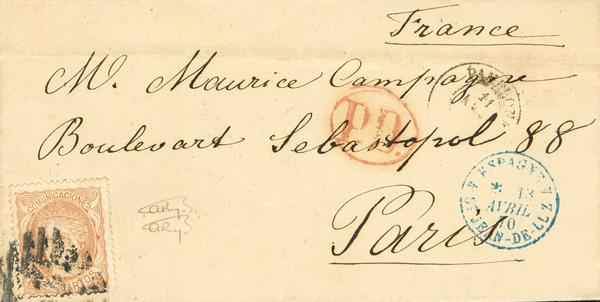 France
M. Maurice Campagne
PAMPLONA
11
P.D.
Boulevart Sebastopol 88
ESPAGNE
* 13
AVRIL
70
ST JEAN-DE-LUZ
Paris
COMUNICACIONES